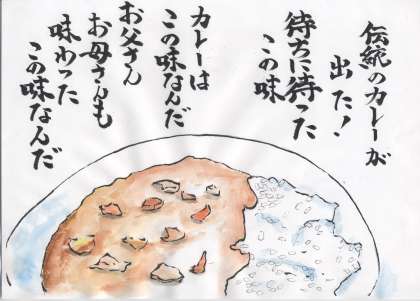 伝統のカレーが
出た!
待ちに待った
この味
カレーは
この味なんだ
お父さん
お母さんも
味わった
この味なんだ